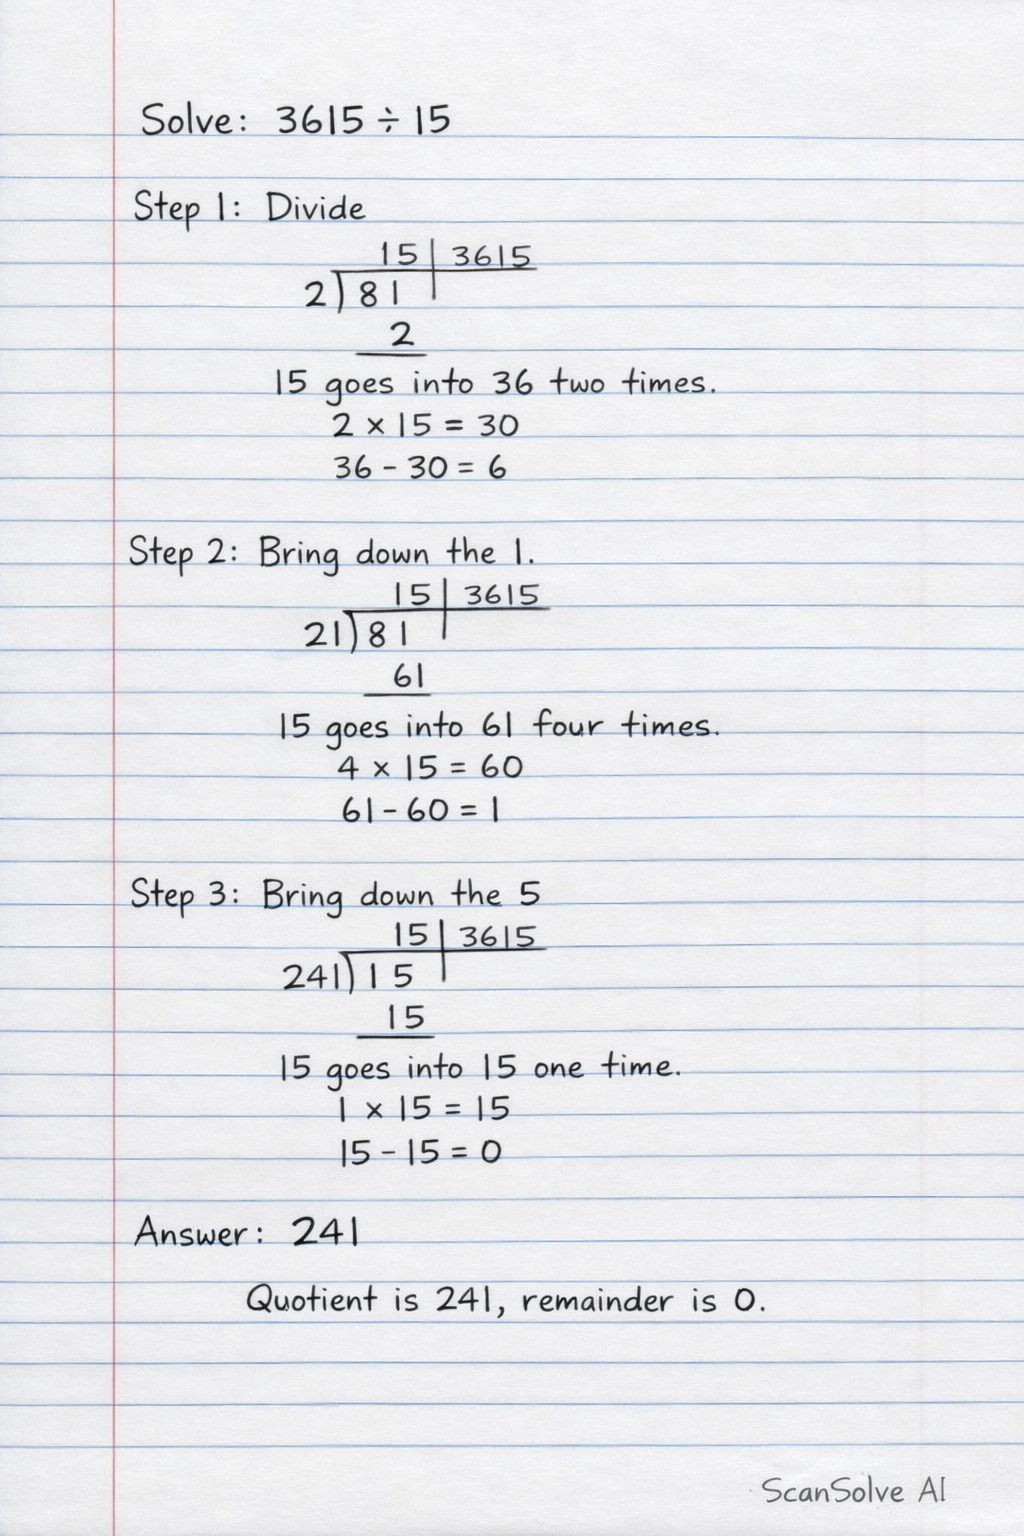 Solve: 3615 ÷ 15
Step 1: Divide
15 | 3615
2)81
2
15 goes into 36 two times.
2 × 15 = 30
36 - 30 = 6
Step 2: Bring down the 1.
15 | 3615
21)81
61
15 goes into 61 four times.
4 × 15 = 60
61 - 60 = 1
Step 3: Bring down the 5
15 | 3615
241)15
15
15 goes into 15 one time.
1 × 15 = 15
15 - 15 = 0
Answer: 241
Quotient is 241, remainder is 0.
ScanSolve AI